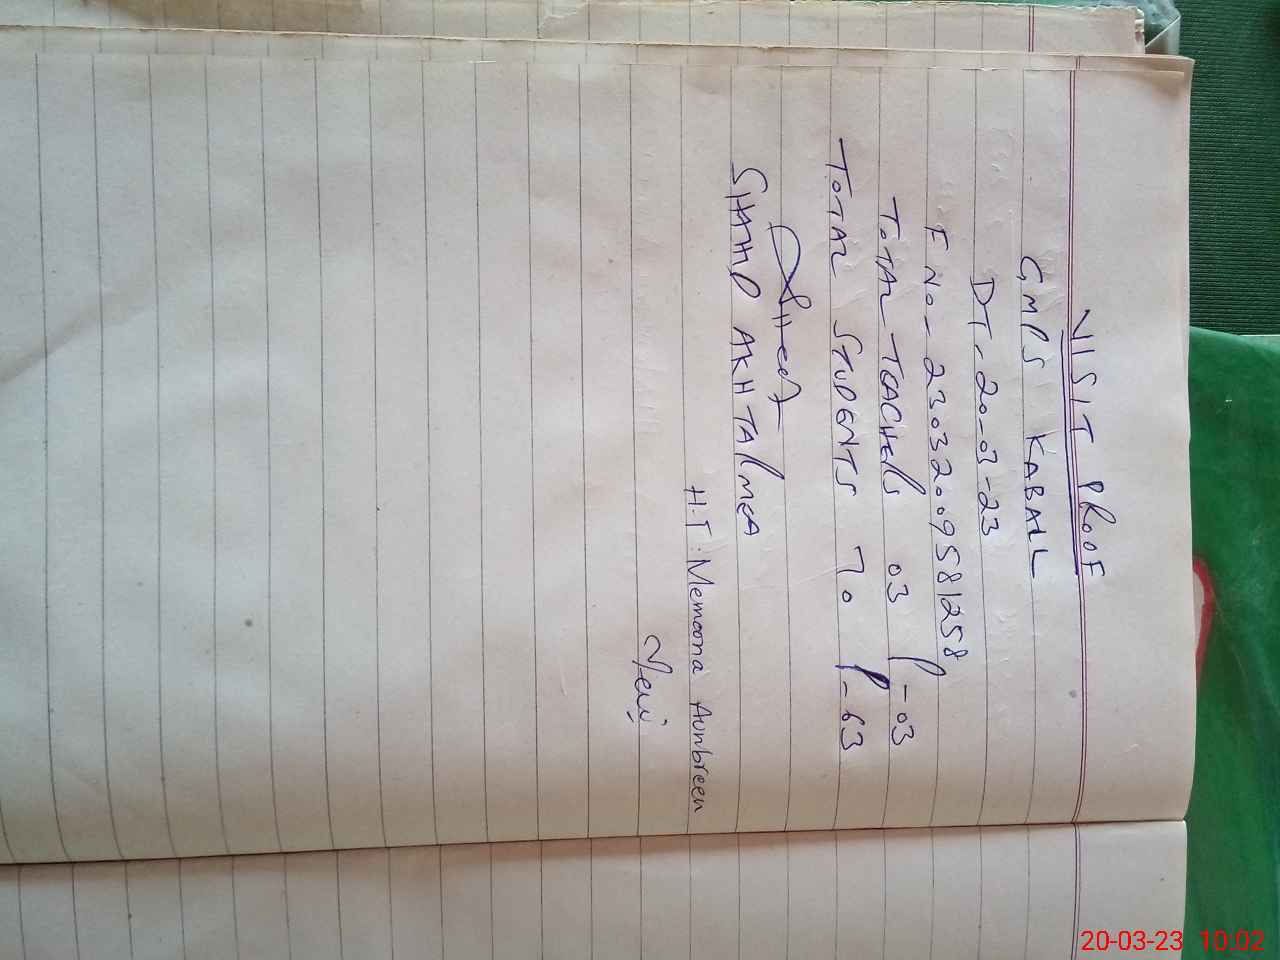 VISIT PROOF
GMPS KABALL
DT. 20-03-23
E NO - 23032009581258
TOTAL TEACHERS 03 P-03
TOTAL STUDENTS 70 P-63
SHAHID AKHTAR MEA
H.T: Memoona Aunbreen
20-03-23 10:02